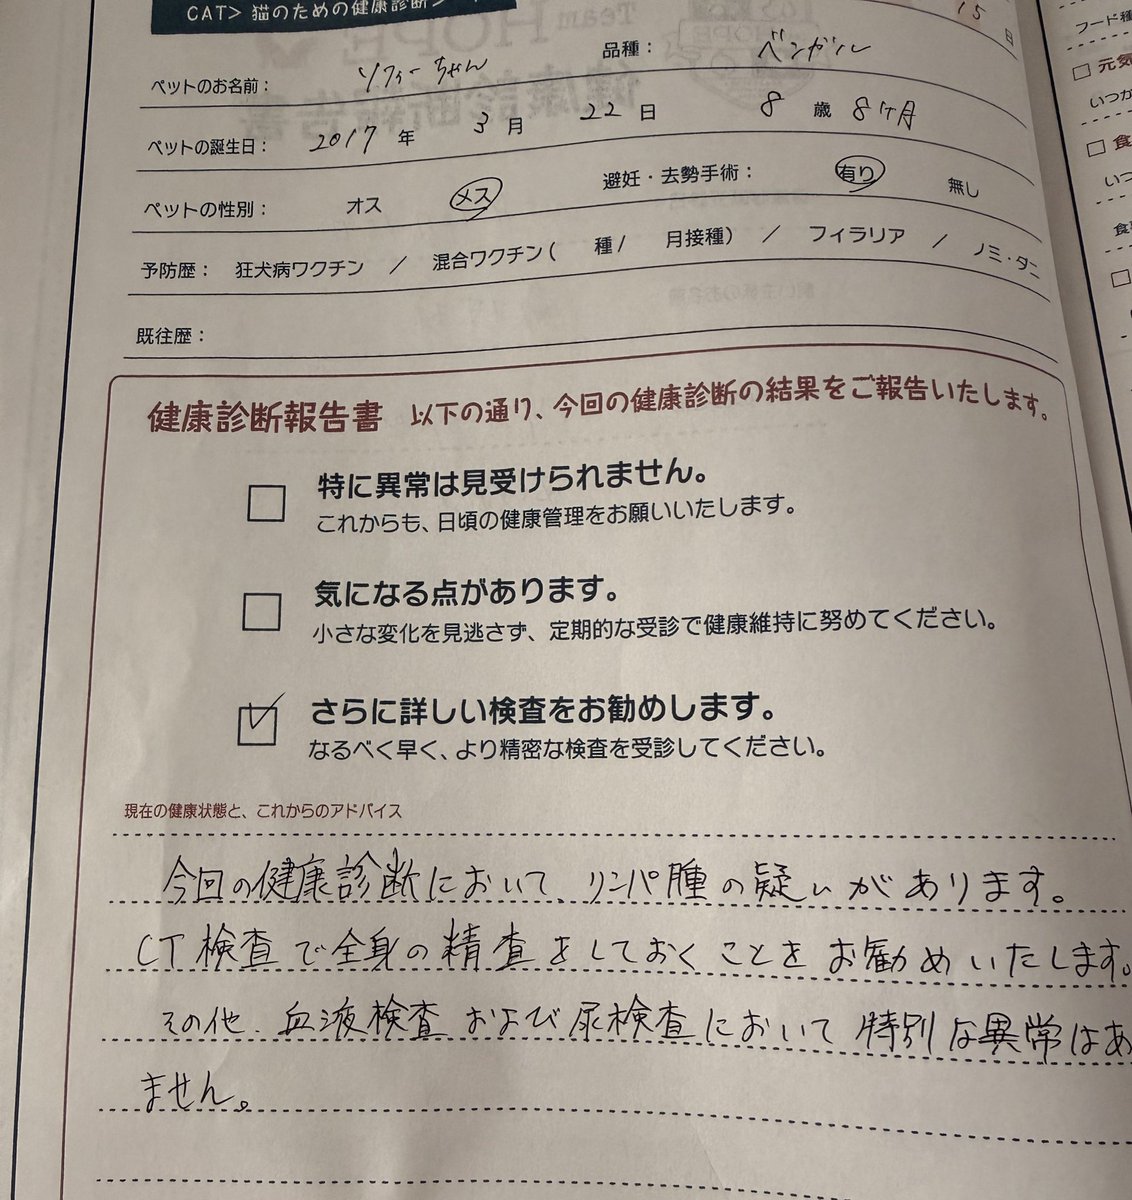 CAT> 猫のための健康診断
15 日
ペットのお名前: ソフィーちゃん 品種: ベンガル
ペットの誕生日: 2017 年 3 月 22 日 8 歳 8ヶ月
ペットの性別: オス メス 避妊・去勢手術: 有り 無し
予防歴: 狂犬病ワクチン / 混合ワクチン( 種/ 月接種) / フィラリア / ノミ・ダニ
既往歴:
健康診断報告書 以下の通り、今回の健康診断の結果をご報告いたします。
特に異常は見受けられません。
これからも、日頃の健康管理をお願いいたします。
気になる点があります。
小さな変化を見逃さず、定期的な受診で健康維持に努めてください。
さらに詳しい検査をお勧めします。
なるべく早く、より精密な検査を受診してください。
現在の健康状態と、これからのアドバイス
今回の健康診断において、リンパ腫の疑いがあります。
CT検査で全身の精査をしておくことをお勧めいたします。
その他、血液検査および尿検査において特別な異常はあ
ません。
フード種
元気
いつか
食
いつ
食事